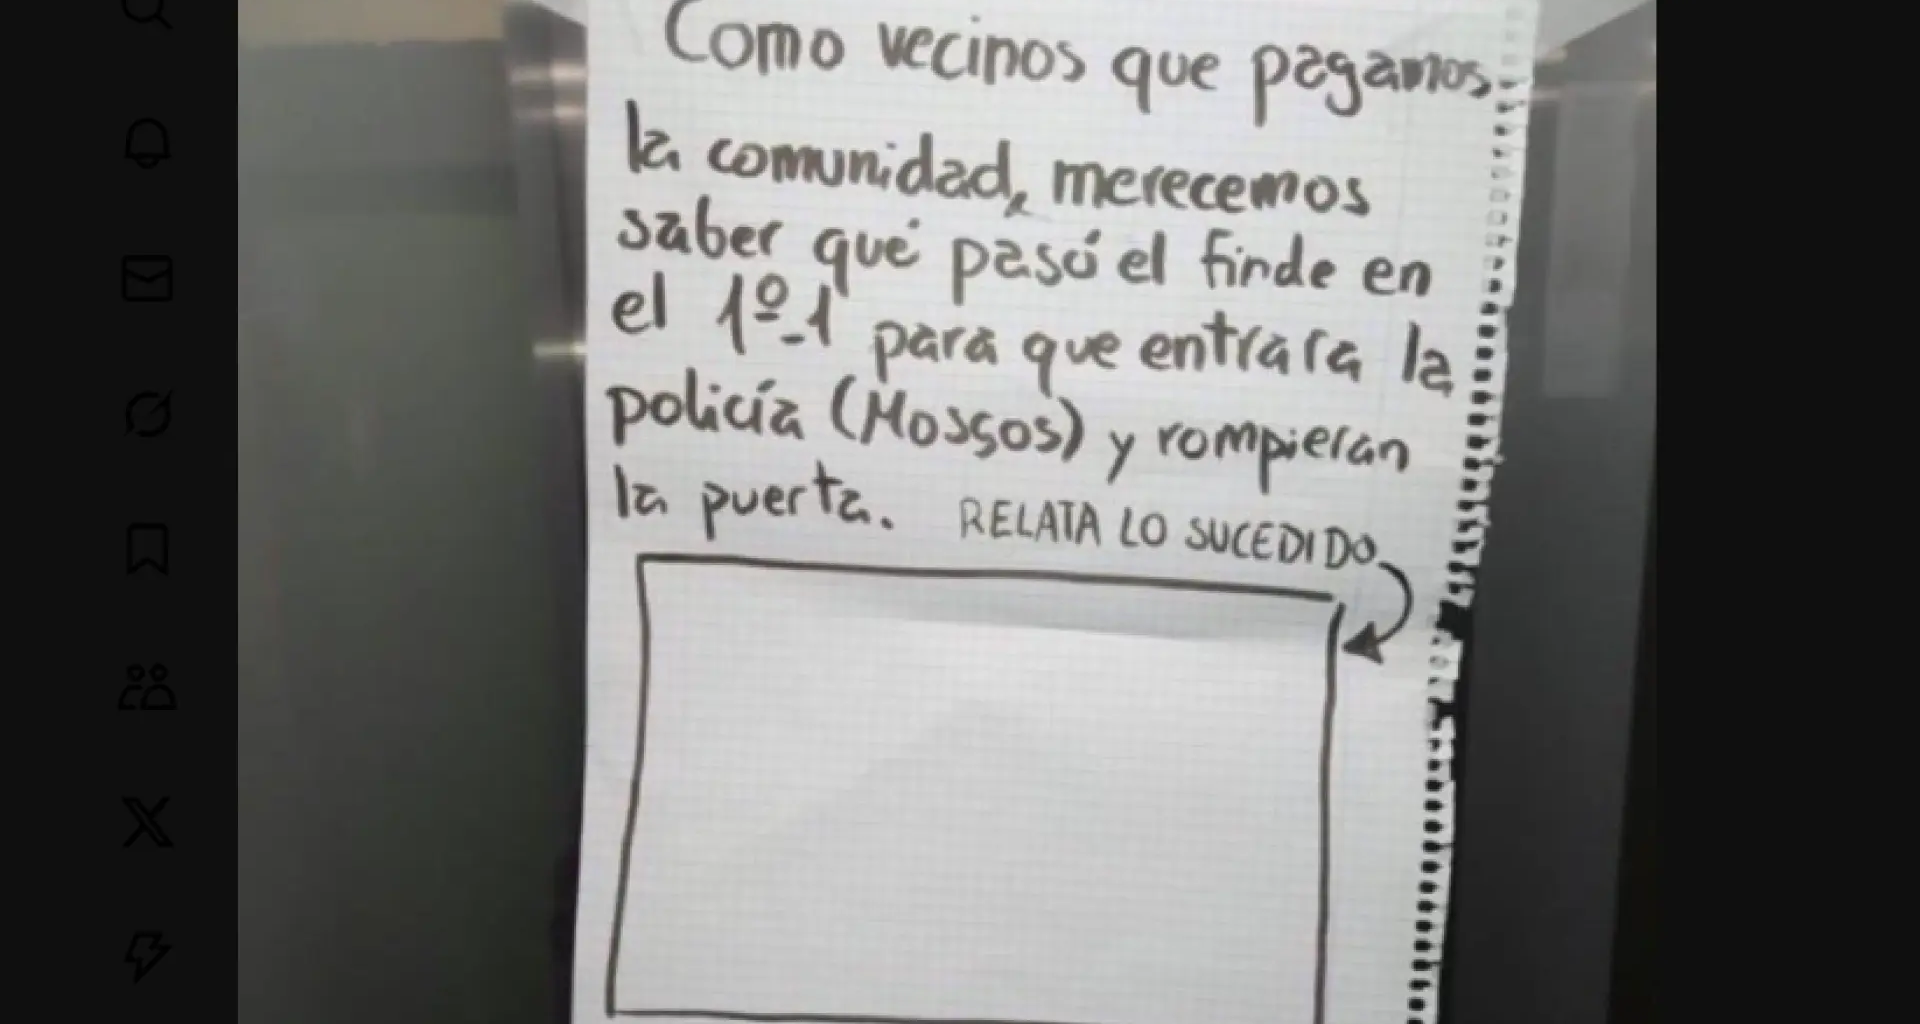 Como vecinos que pagamos
la comunidad, merecemos
saber qué pasó el finde en
el 1º-1 para que entrara la
policía (Mossos) y rompieran
la puerta. RELATA LO SUCEDIDO